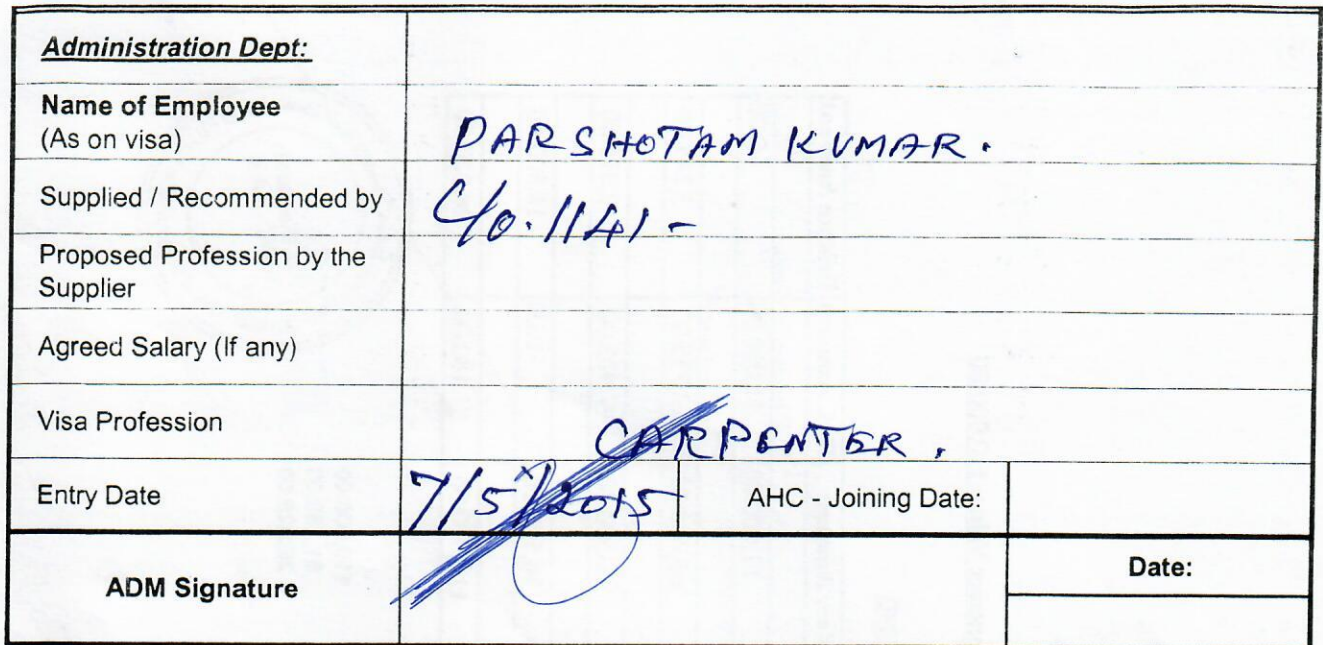 Administration Dept:
Name of Employee
(As on visa)
PARSHOTAM KUMAR.
Supplied / Recommended by
C/o. 1141 -
Proposed Profession by the
Supplier
Agreed Salary (If any)
Visa Profession
CARPENTER.
Entry Date
7/5/2015
AHC - Joining Date:
ADM Signature
Date: